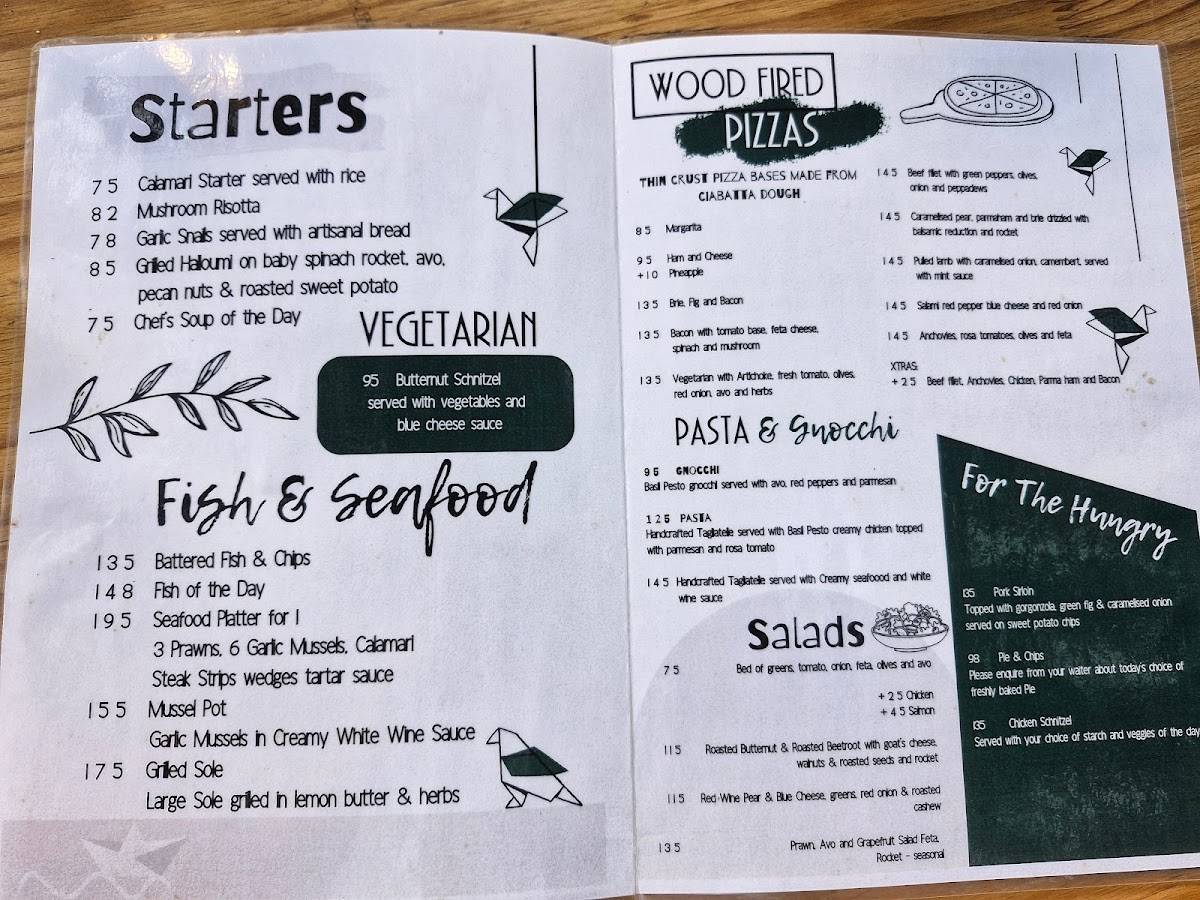 Starters
75 Calamari Starter served with rice
82 Mushroom Risotta
78 Garlic Snails served with artisanal bread
85 Grilled Halloumi on baby spinach rocket, avo,
pecan nuts & roasted sweet potato
75 Chef's Soup of the Day
VEGETARIAN
95 Butternut Schnitzel
served with vegetables and
blue cheese sauce
Fish & Seafood
135 Battered Fish & Chips
148 Fish of the Day
195 Seafood Platter for 1
3 Prawns, 6 Garlic Mussels, Calamari
Steak Strips wedges tartar sauce
155 Mussel Pot
Garlic Mussels in Creamy White Wine Sauce
175 Grilled Sole
Large Sole grilled in lemon butter & herbs
WOOD FIRED
PIZZAS
THIN CRUST PIZZA BASES MADE FROM
CIABATTA DOUGH
85 Margarita
95 Ham and Cheese
+10 Pineapple
135 Brie, Fig and Bacon
135 Bacon with tomato base, feta cheese,
spinach and mushroom
135 Vegetarian with Artichoke, fresh tomato, olives,
red onion, avo and herbs
145 Beef fillet with green peppers, olives,
onion and peppadews
145 Caramelised pear, parmaham and brie drizzled with
balsamic reduction and rocket
145 Pulled lamb with caramelised onion, camembert, served
with mint sauce
145 Salami red pepper blue cheese and red onion
145 Anchovies, rosa tomatoes, olives and feta
XTRAS:
+25 Beef fillet, Anchovies, Chicken, Parma ham and Bacon
PASTA & Gnocchi
95 GNOCCHI
Basil Pesto gnocchi served with avo, red peppers and parmesan
125 PASTA
Handcrafted Tagliatelle served with Basil Pesto creamy chicken topped
with parmesan and rosa tomato
145 Handcrafted Tagliatelle served with Creamy seafoood and white
wine sauce
Salads
75 Bed of greens, tomato, onion, feta, olives and avo
+25 Chicken
+45 Salmon
115 Roasted Butternut & Roasted Beetroot with goat's cheese,
walnuts & roasted seeds and rocket
115 Red-Wine Pear & Blue Cheese, greens, red onion & roasted
cashew
135 Prawn, Avo and Grapefruit Salad Feta,
Rocket - seasonal
For The Hungry
135 Pork Sirloin
Topped with gorgonzola, green fig & caramelised onion
served on sweet potato chips
98 Pie & Chips
Please enquire from your waiter about today's choice of
freshly baked Pie
135 Chicken Schnitzel
Served with your choice of starch and veggies of the day